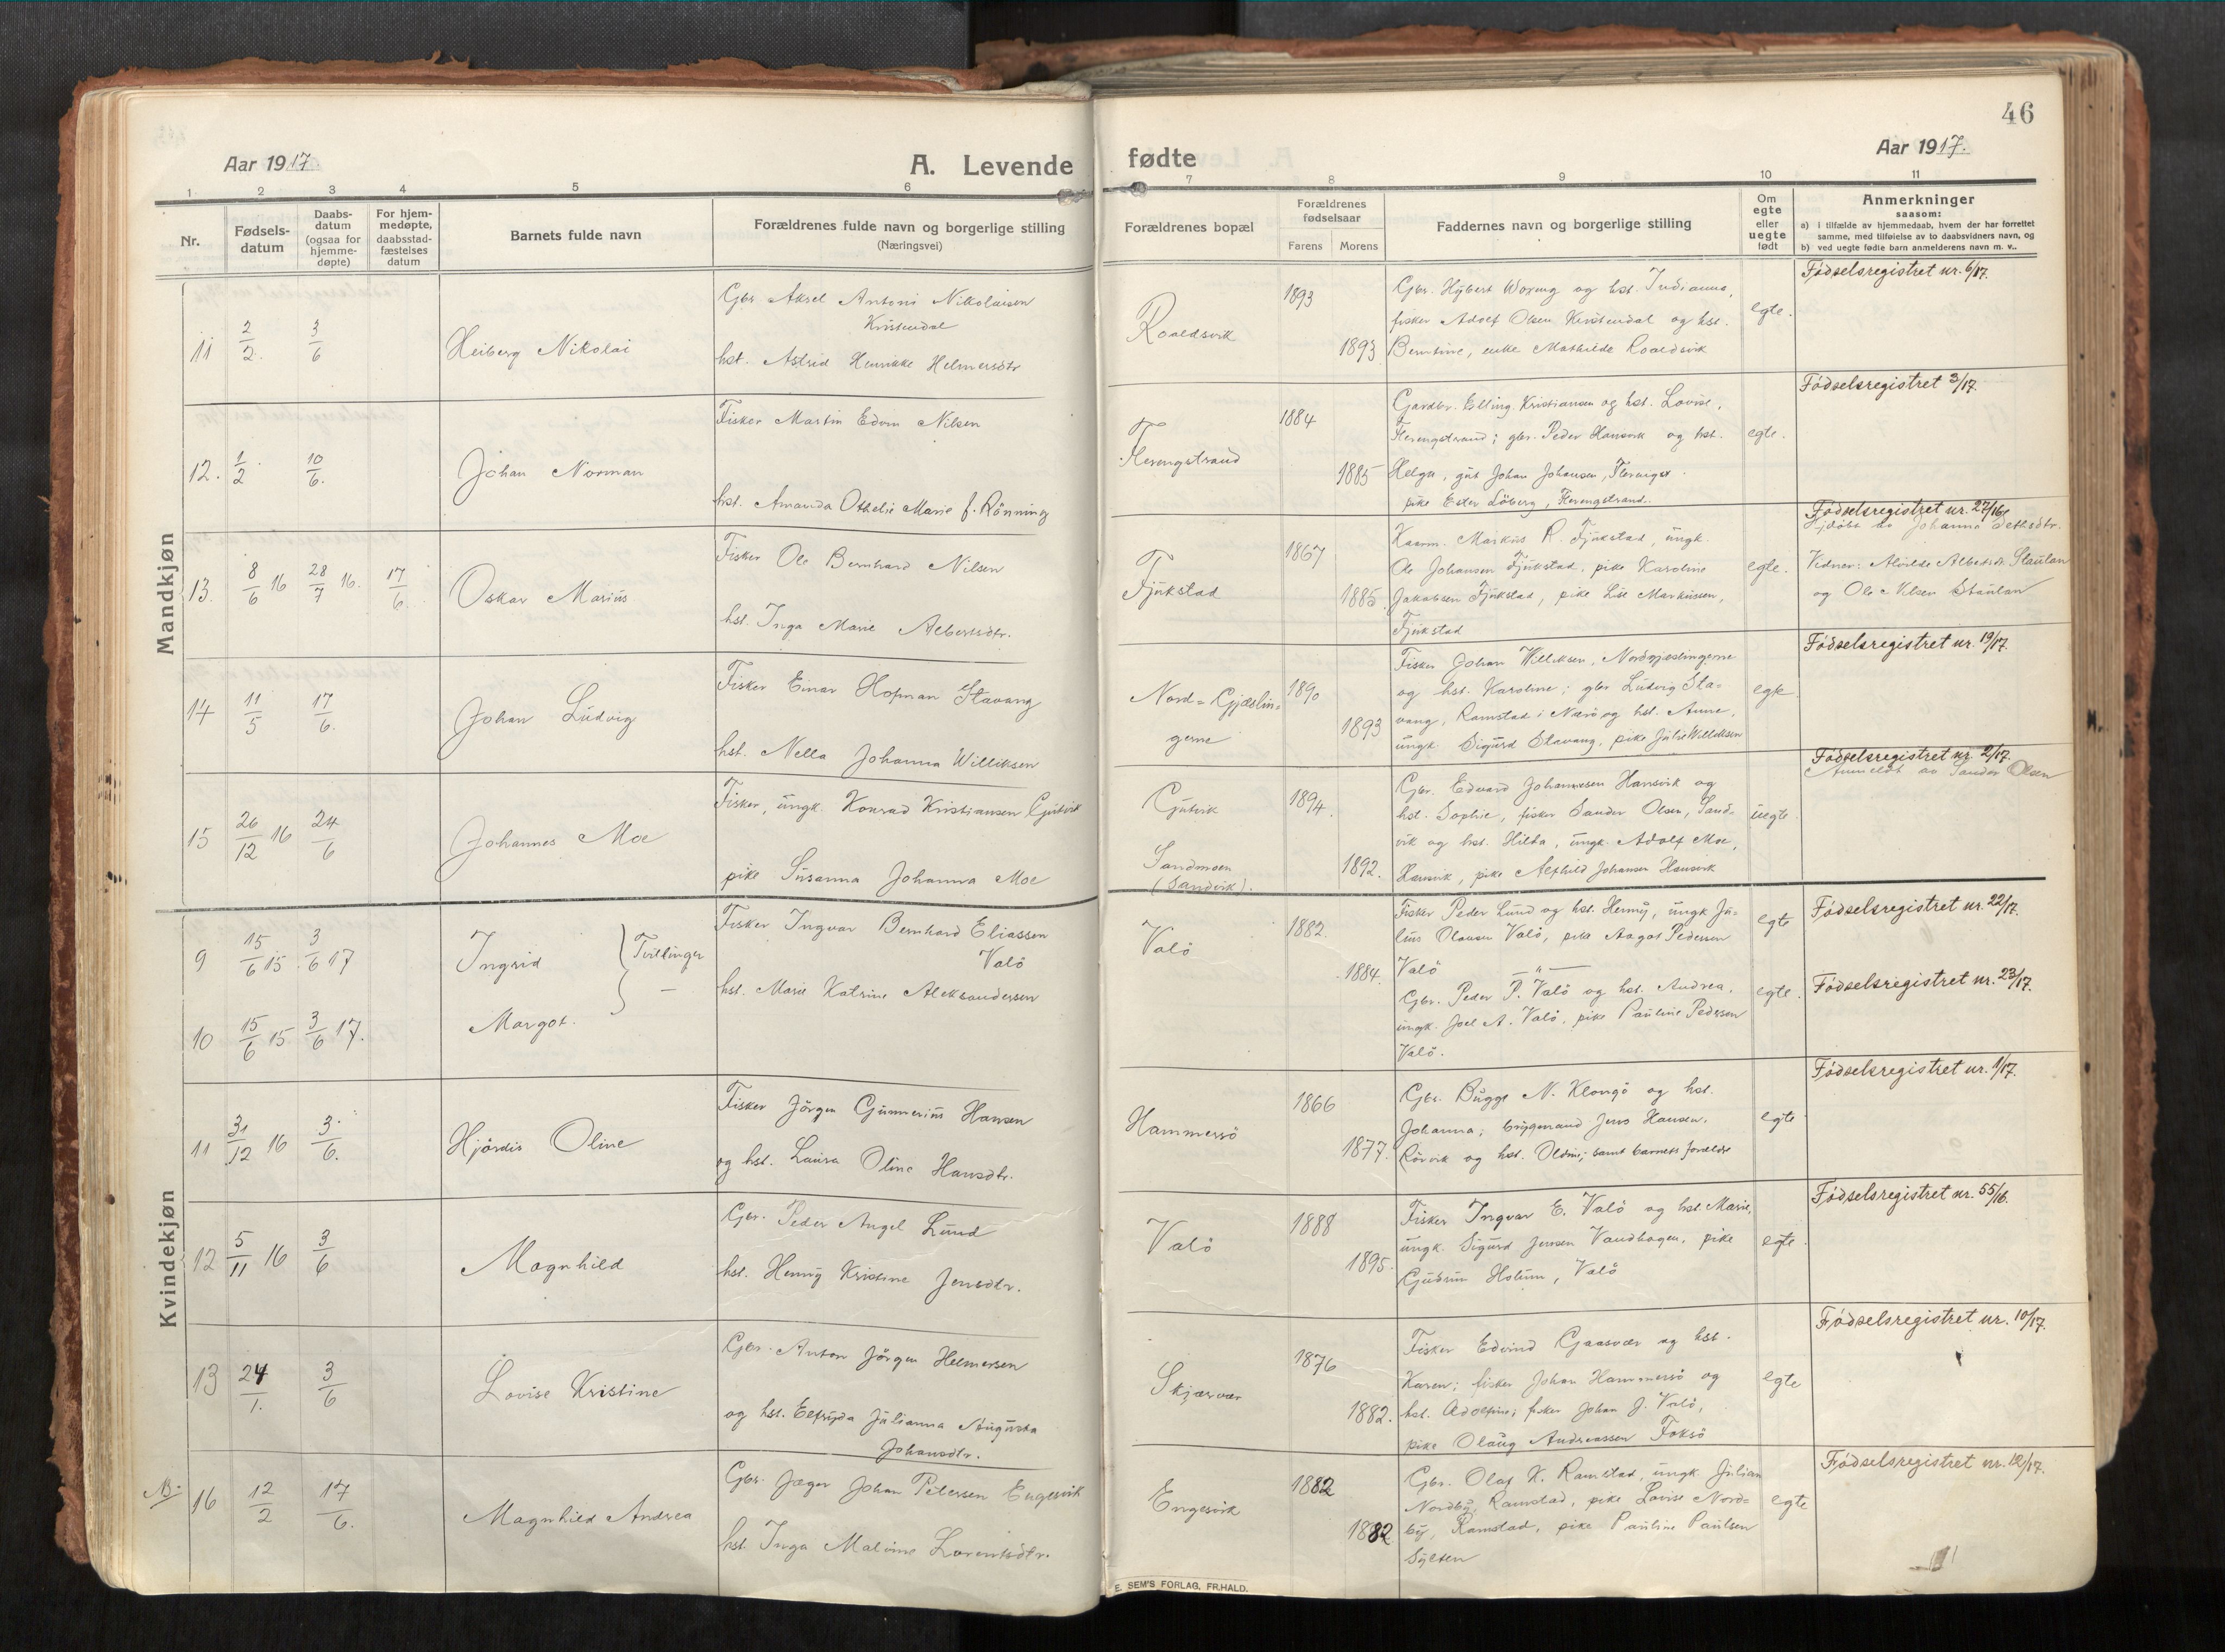 46
Aar 1917.
A. Levende
fødte
Aar 1917.
1 2 3 4 5 6
7 8 9 10 11
Nr.
Fødsels-
datum
Daabs-
datum
(ogsaa for
hjemme-
døpte)
For hjem-
medøpte,
daabsstad-
fæstelses
datum
Barnets fulde navn
Forældrenes fulde navn og borgerlige stilling
(Næringsvei)
Forældrenes bopæl
Forældrenes
fødselsaar
Farens Morens
Faddernes navn og borgerlige stilling
Om
egte
eller
uegte
født
Anmerkninger
saasom:
a) i tilfælde av hjemmedaab, hvem der har forrettet
samme, med tilføielse av to daabsvidners navn, og
b) ved uegte fødte barn anmelderens navn m. v..
Mandkjøn
11 2/2. 3/6 Heiberg Nikolai
Gbr Aksel Antoni Nikolaisen
Kristendal
hst. Astrid Henrikke Helmersdtr
Roaldsvik 1893 1893
Gbr. Hybert Woxeng og hst. Indianna,
fisker Adolf Olsen Kristendal og hst.
Berntine, enke Mathilde Roaldsvik
egte.
Fødselsregistret nr. 6/17.
12. 1/2 10/6. Johan Norman
Fisker Martin Edvin Nilsen
hst. Amanda Othelie Marie f. Rönning
Flerengstrand 1884 1885
Gardbr. Elling Kristiansen og hst. Lovise,
Flerengstrand; gbr. Peder Hansvik og hst.
Helga, gut Johan Johansen, Flerengst.
pike Ester Löberg, Flerengstrand.
egte.
Fødselsregistret 3/17.
13. 8/6 16 28/7 16. 17/6. Oskar Marius
Fisker Ole Bernhard Nilsen
hst. Inga Marie Albertsdtr.
Fjukstad 1867 1885.
Kaarm. Markus R. Fjukstad, ungk.
Ole Johansen Fjukstad, pike Karoline
Jakobsen Fjukstad, pike Lise Markussen,
Fjukstad
egte.
Fødselsregistret nr. 27/16.
Hjdöbt av Johanna Dethsdtr.
Vidner: Alvilde Albertsd. Staulan
og Ole Nilsen Staulan
14 11/5 17/6. Johan Ludvig
Fisker Einar Hofman Stavang
hst. Nella Johanna Williksen
Nord-Gjæslin-
gerne
1890 1893
Fisker Johan Williksen, Nordgjæslingerne
og hst. Karoline; gbr Ludvig Sta-
vang, Ramstad i Nærö og hst. Anne,
ungk. Sigurd Stavang, pike Julie Williksen
egte.
Fødselsregistret nr. 19/17.
15 26/12 16 24/6 Johannes Moe
Fisker, ungk. Konrad Kristiansen Gjutvik
pike Susanna Johanna Moe
Gjutvik
Sandmoen
(Sandvik).
1894. 1892.
Gbr. Edvard Johannesen Hansvik og
hst. Sophie, fisker Sander Olsen, Sand-
vik og hst. Hilda, ungk. Adolf Moe,
Hansvik, pike Alfhild Johansen Hansvik
uegte.
Fødselsregistret nr. 2/17.
Anmeldt av Sander Olsen
Kvindekjøn
9 15/6 15. 3/6 17 Ingrid Tvillinger
Fisker Ingvar Bernhard Eliassen
Valö
hst. Marie Katrine Aleksandersen
Valö 1882. 1884.
Fisker Peder Lund og hst. Henny, ungk Ju-
lius Olausen Valö, pike Aagot Pedersen
Valö
egte
Fødselsregistret nr. 22/17.
10 15/6 15. 3/6 17. Margot. —
— " —
Gbr. Peder P. Valö og hst. Andrea,
ungk. Joel A. Valö, pike Pauline Pedersen
Valö.
egte.
Fødselsregistret nr. 23/17.
11 31/12 16 3/6. Hjördis Oline
Fisker Jörgen Gunnerius Hansen
og hst. Laura Oline Hansdtr.
Hammersö 1866 1877.
Gbr. Bugge N. Klongö og hst.
Johanna; bygmand Jens Hansen,
Rörvik og hst. Oldine; samt barnets forældre
egte
Fødselsregistret nr. 1/17.
12 5/11 16 3/6 Magnhild
Gbr. Peder Angel Lund
hst. Henny Kristine Jensdtr.
Valö 1888 1895.
Fisker Ingvar E. Valö og hst. Marie,
ungk. Sigurd Jensen Vandhagen, pike
Gudrun Holum, Valö
egte.
Fødselsregistret nr. 55/16.
13 24/1. 3/6 Lovise Kristine
Gbr. Anton Jörgen Helmersen
og hst. Elfrida Julianna Augusta
Johansdtr.
Skjærvær 1876 1882.
Fisker Edvind Gaasvær og hst.
Karen; fisker Johan Hammersö og
hst. Adolfine; fisker Johan J. Valö,
pike Olaug Andreassen Foksö
egte
Fødselsregistret nr. 10/17.
NB. 16 12/2 17/6. Magnhild Andrea
Gbr. Jæger Johan Petersen Engesvik
hst. Inga Malvine Lorentsdtr.
Engesvik 1882 1882
Gbr. Olaf K. Ramstad, ungk. Julian
Nordby, Ramstad, pike Lovise Nord-
by, Ramstad, pike Pauline Paulsen
Sylten
egte
Fødselsregistret nr. 12/17.
E. SEM'S FORLAG, FR.HALD.